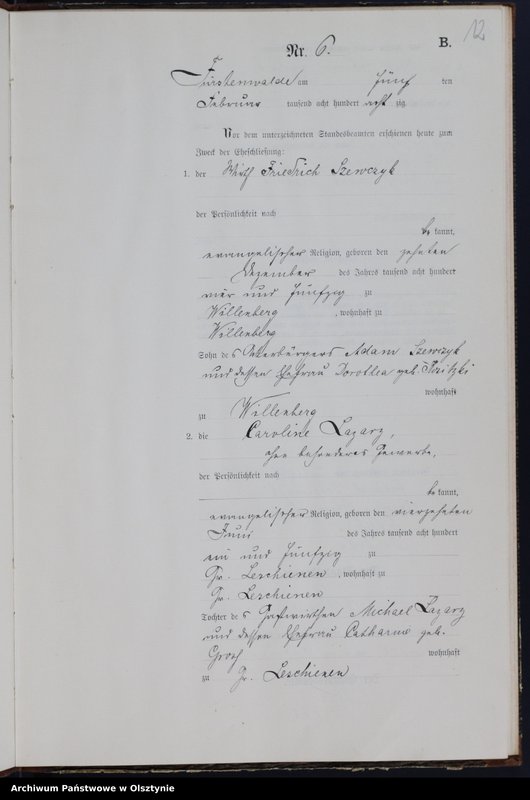 12
Nr. 6. B.
Fürstenwalde am fünf ten
Februar tausend acht hundert acht zig
Vor dem unterzeichneten Standesbeamten erschienen heute zum
Zweck der Eheschließung:
1. der Wirth Friedrich Szewczyk
der Persönlichkeit nach
be kannt,
evangelischer Religion, geboren den zehnten
Dezember des Jahres tausend acht hundert
vier und fünfzig zu
Willenberg , wohnhaft zu
Willenberg
Sohn des Adam Szewczyk
und dessen Ehefrau Dorothea geb.
wohnhaft
zu Willenberg
2. die Caroline Lazarz,
ohne besonderes Gewerbe,
der Persönlichkeit nach
be kannt,
evangelischer Religion, geboren den vierzehnten
Juni des Jahres tausend acht hundert
ein und fünfzig zu
Gr. Leschienen , wohnhaft zu
Gr. Leschienen
Tochter des Gastwirthen Michael Lazarz
und dessen Ehefrau Catharine geb.
wohnhaft
zu Gr. Leschienen
Archiwum Państwowe w Olsztynie